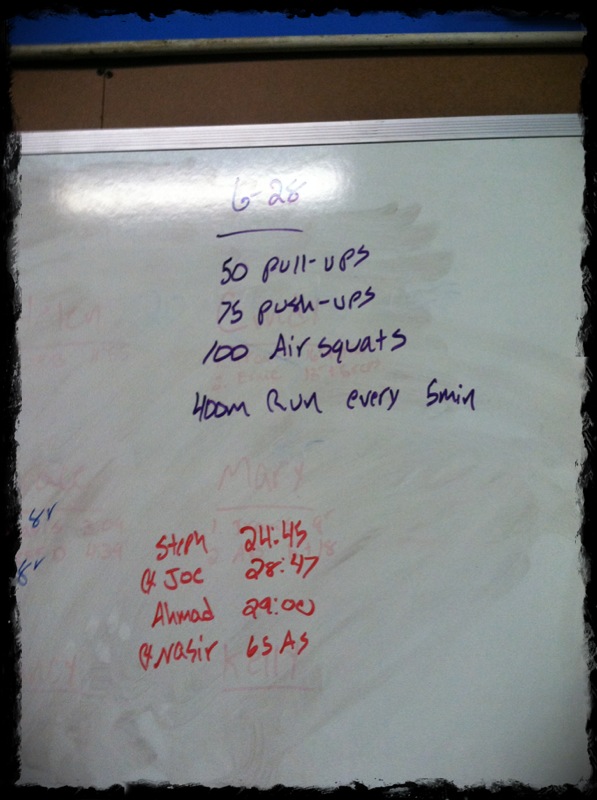 6-28
50 pull-ups
75 push-ups
100 Air squats
400m Run every 5min
Mary
8r
Steph 24:45
8r
Joe 28:47
Ahmad 29:00
Nasir 65 As
Kelly